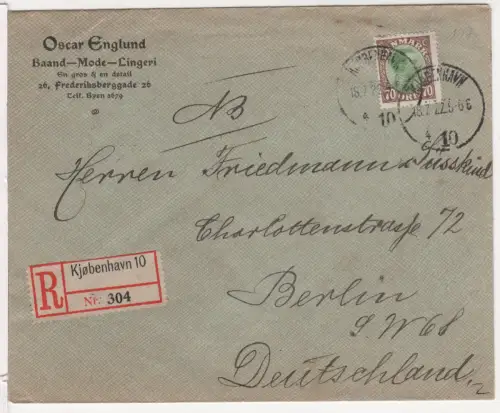 Oscar Englund
Baand—Mode—Lingeri
En gros & en detail
26, Frederiksberggade 26
Telf. Byen 1679
DANMARK
70 ØRE 70
KJØBENHAVN
10
KJØBENHAVN
10
NB
Herren Friedmann & Süsskind
Charlottenstraße 72
Berlin
S.W 68
Deutschland
R
Kjøbenhavn 10
Nr. 304